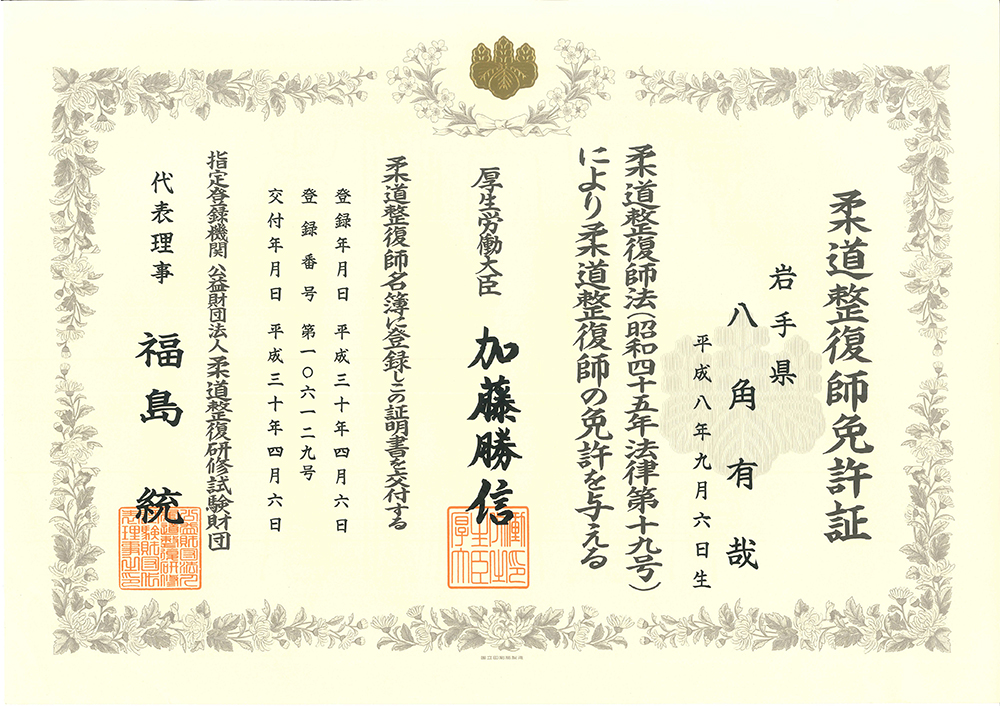 柔道整復師免許証
岩手県
八角有哉
平成八年九月六日生
柔道整復師法(昭和四十五年法律第十九号)
により柔道整復師の免許を与える
厚生労働大臣 加藤勝信
柔道整復師名簿に登録しこの証明書を交付する
登録年月日 平成三十年四月六日
登録番号 第一〇六一二九号
交付年月日 平成三十年四月六日
指定登録機関 公益財団法人 柔道整復研修試験財団
代表理事 福島 統